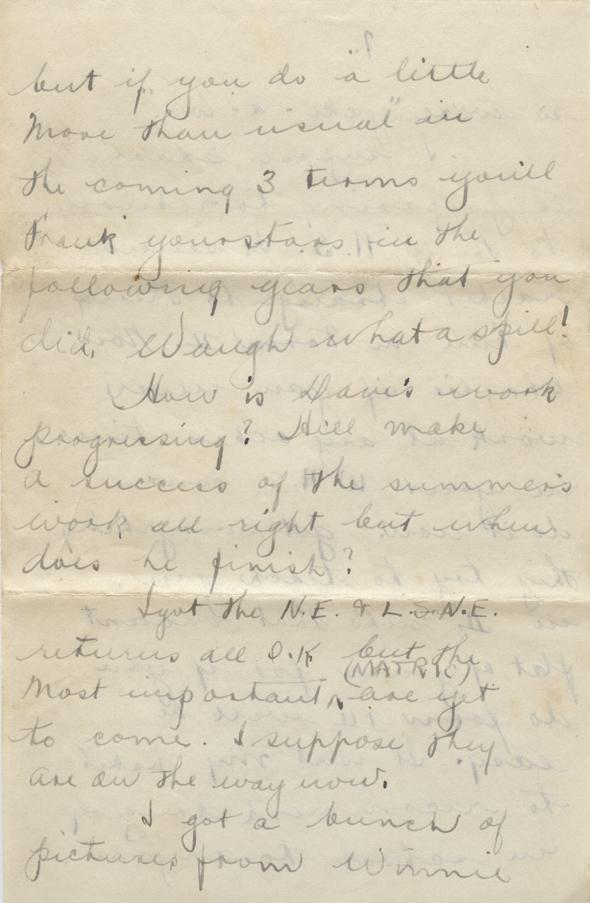 but if you do "a little
more than usual" in
the coming 3 terms you'll
thank yourstars in the
following years that you
did. Waugh what a spill!
How is Dave's work
progressing? Hill make
a success of the summer's
work all right but when
does he finish?
I got the N.E. & L.S.N.E.
returns all O.K but the
(MATRIC)
most important, are yet
to come. I suppose they
are on the way now.
I got a bunch of
pictures from Winnie